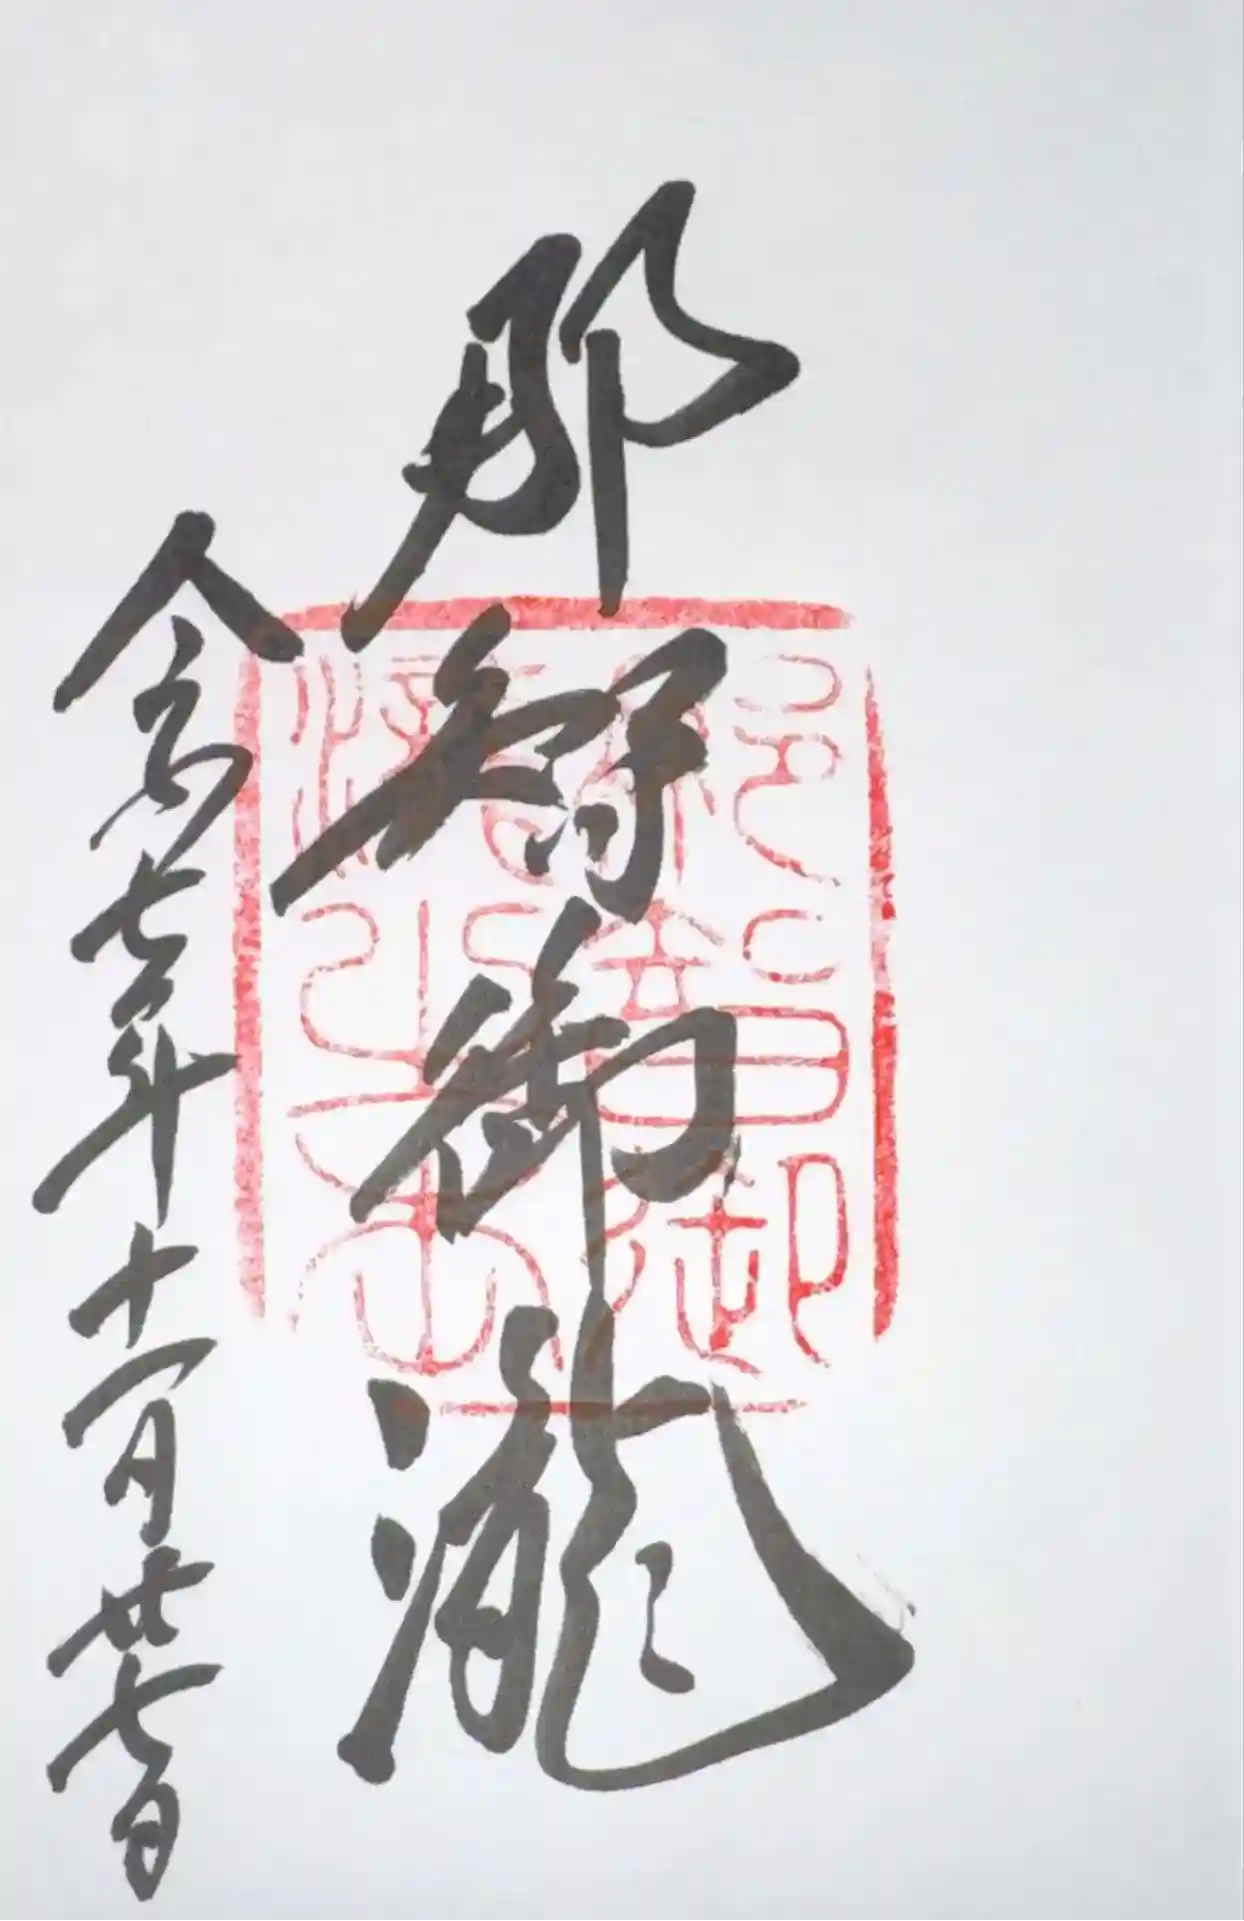 那智御瀧
令和七年十一月廿七日